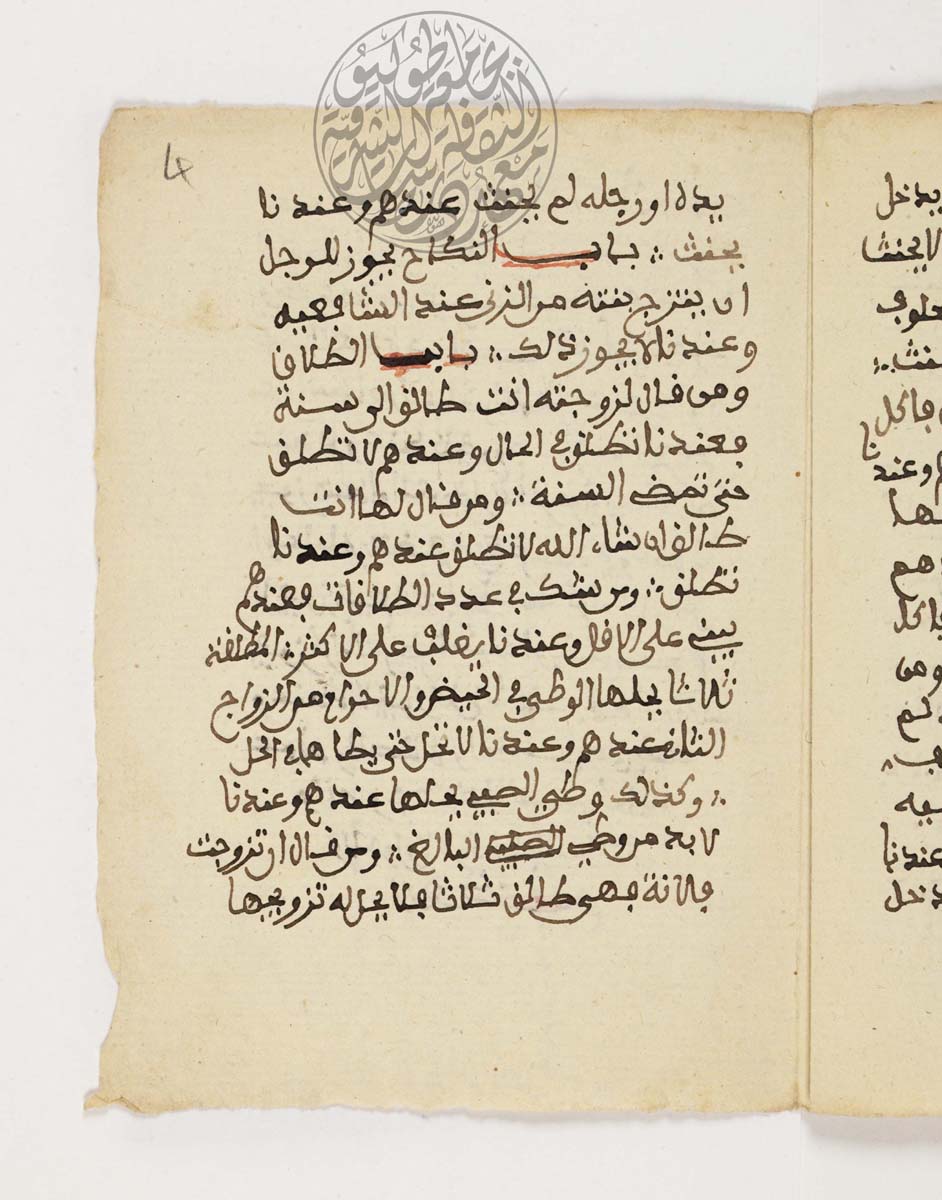 4
يده او رجله لم يحنث عندهم وعندنا
يحنث ∴ باب النكاح يجوز للرجل
ان يتزوج بنته من الزنى عند الشافعيه
وعندنا لا يجوز ذلك ∴ باب الطلاق
ومن قال لزوجته انت طالق الى سنة
فعندنا تطلق في الحال وعندهم لا تطلق
حتى تمضي السنة ∴ ومن قال لها انت
طالق ان شاء الله لا تطلق عندهم وعندنا
تطلق ∴ ومن شك في عدد الطلاقات فعندهم
يبني على الاقل وعندنا يغلب على الاكثر ∴ المطلقة
ثلاثا يحلها الوطي في الحيض والاحرام من الزواج
الثاني عندهم وعندنا لا تحل حتى يطاها في الحل
∴ وكذلك وطي الصبي يحلها عندهم وعندنا
لا بد من وطي البالغ ∴ ومن قال ان تزوجت
فلانة فهي طالق ثلاثا فلا يحل له تزويجها
يدخل
لا يحنث
حنث ∴
فاكل
وعندنا
هم
ومن
لم
عندنا
دخل